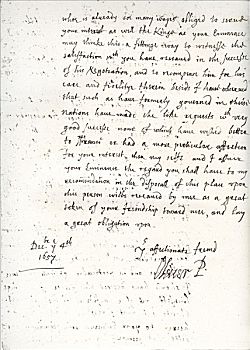 who is already so many wayes obliged to serve
your interest as well the Kings as your Eminence
may thinke this a fitting way to witnesse the
satisfaction wch you have received in the successe
of his Negotiation, and to recompense him for his
care and fidelitye therein besides I have observed
that such as have formerly governed in these
Nations have made the like requests wth very
good successe none of which have wished better
to France or had a more particular affection
for your interest, than my selfe and I assure
your Eminence the regard you shall have to my
recommendation in the disposall of this place upon
this person wilbe received by mee as a great
token of your friendship toward mee, and lay
a great obligation upon
Dec. ye 4th
1657
Yr affectionate freind
Oliver P